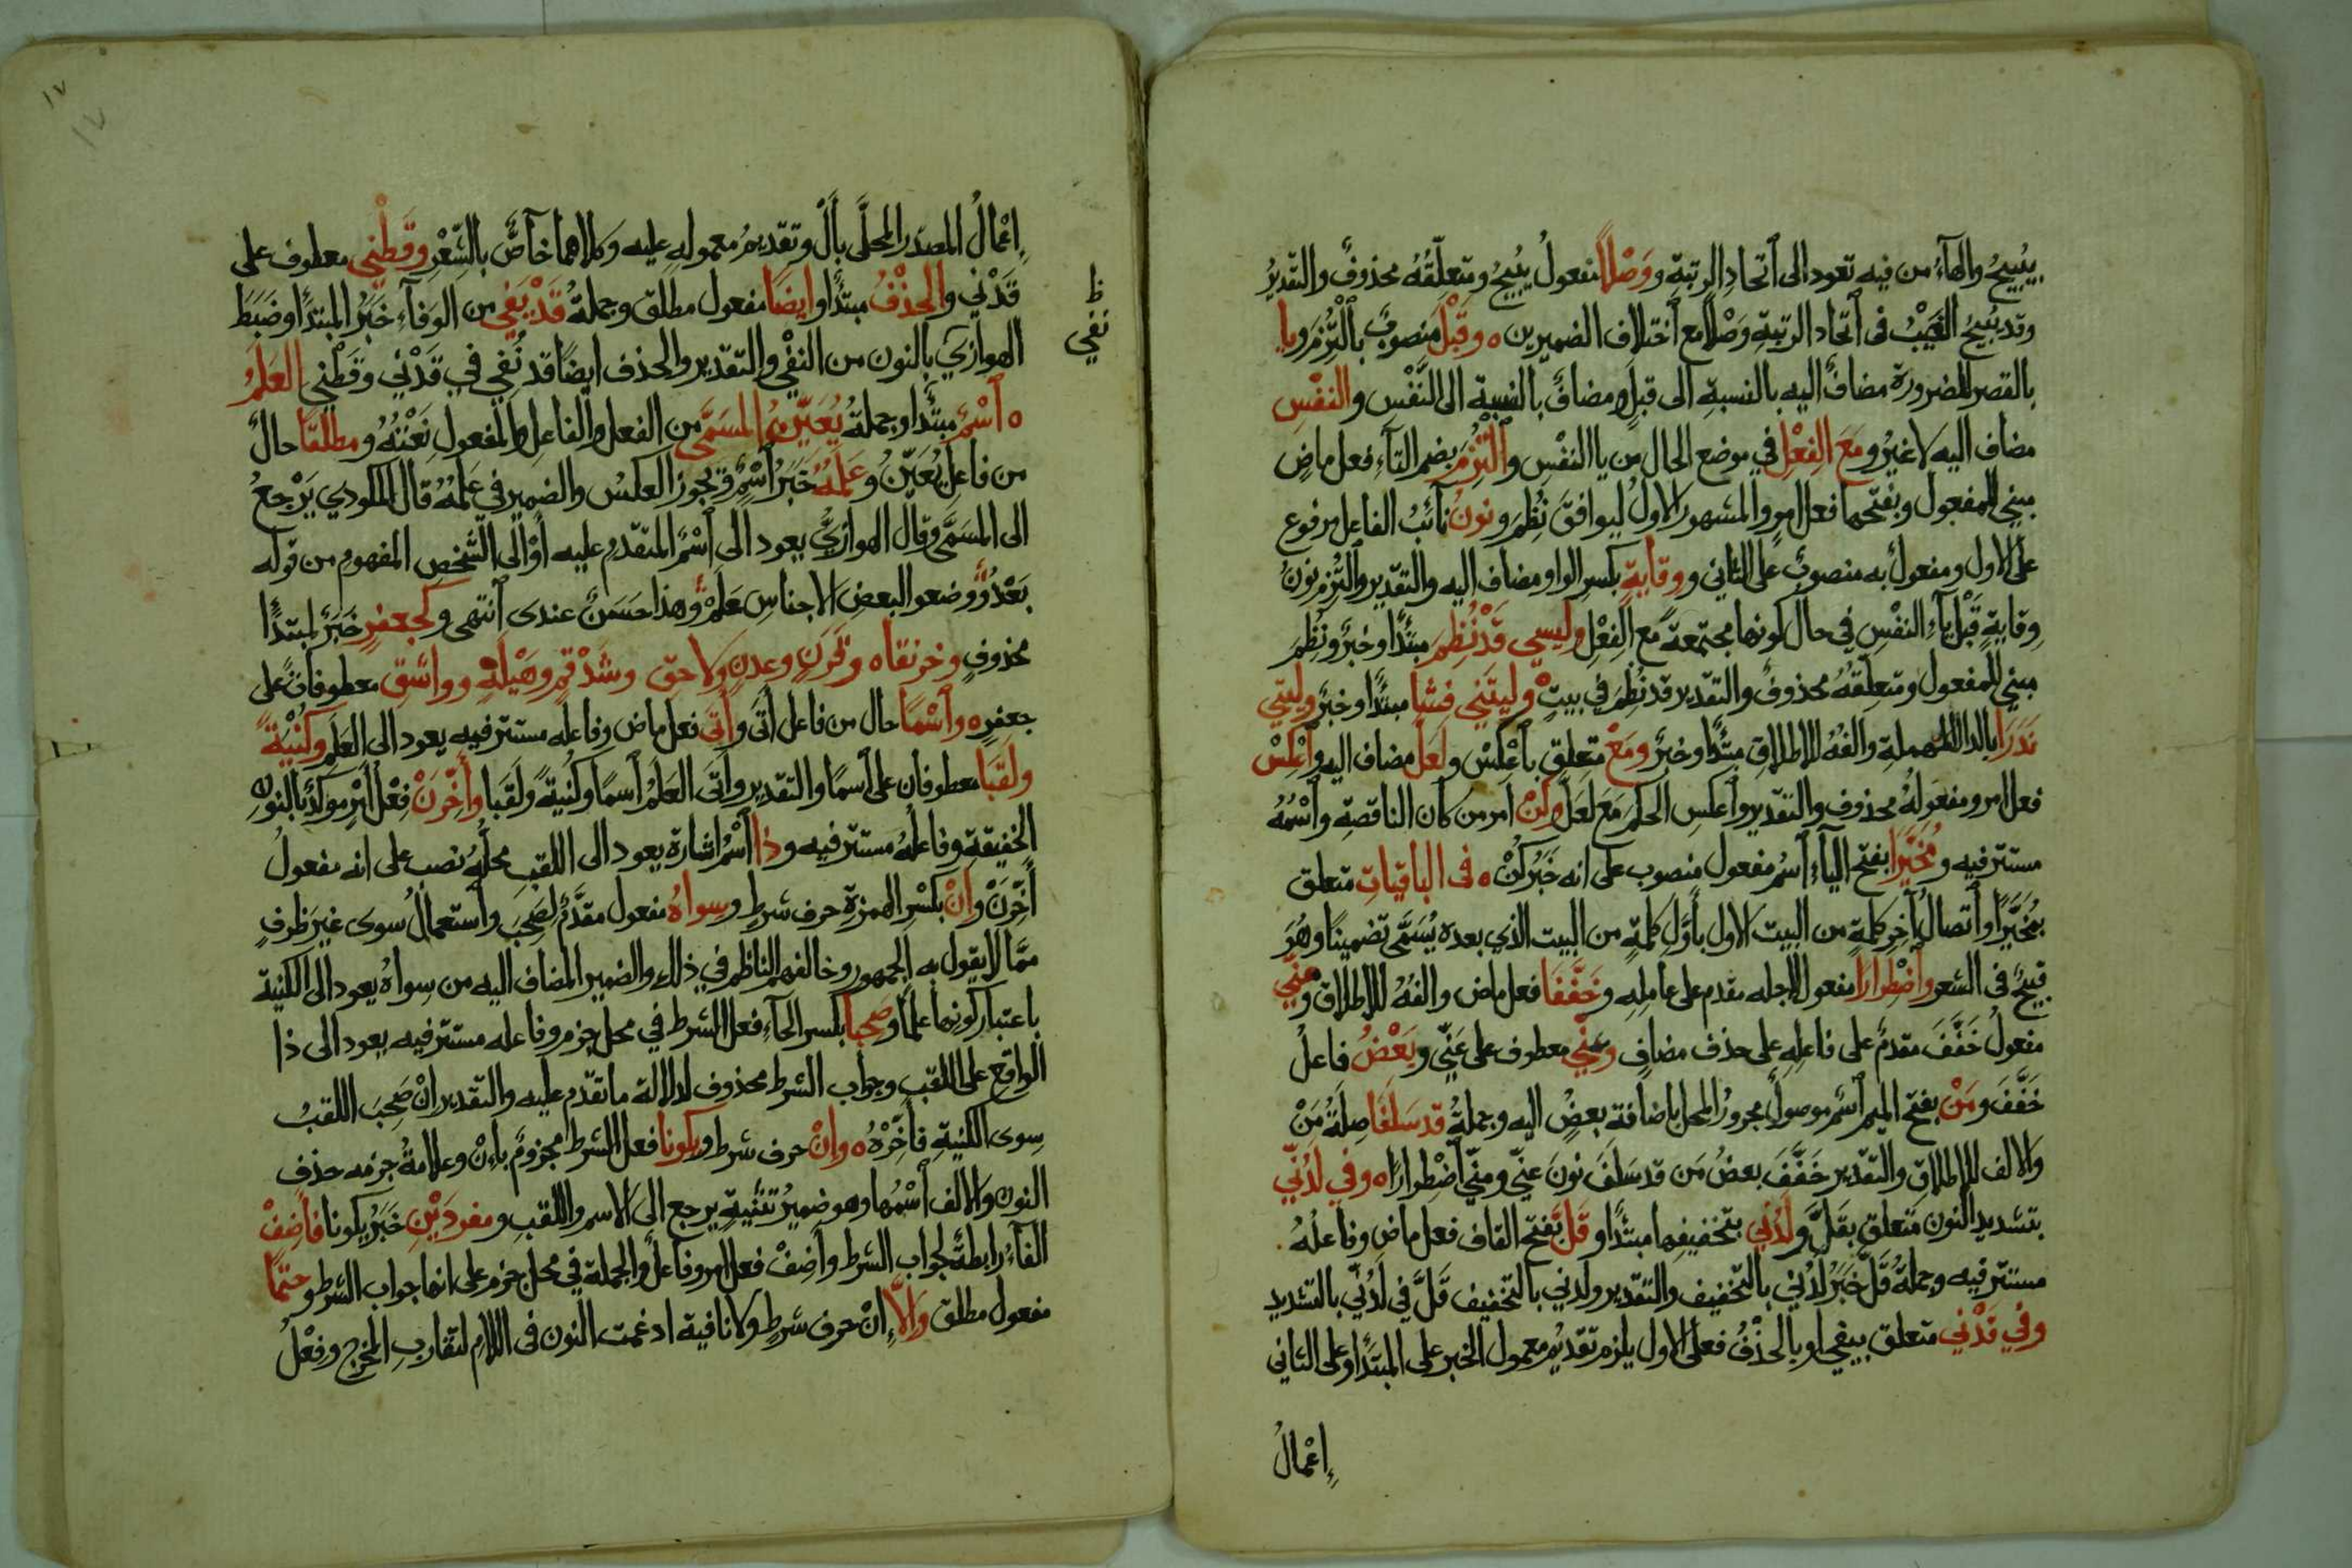 يبيحُ والهآءُ من فيه تعود الى اتحادِ الرتبةِ ووَصْلاً مفعولُ يُبيحُ ومتعلّقُهُ محذوفٌ والتقديرُ
وقد يُبيحُ الغَيْبُ فى اتحاد الرتبةِ وَصْلاً مع اختلاف الضميرين ٥ وقَبْلَ منصوبٌ بالْتُزِمَ ويا
بالقصر للضرورة مضافٌ اليه بالنسبةِ الى قبل ومضافٌ بالنسبة الى النَّفْس والنفْسِ
مضاف اليه لا غيرُ ومَعَ الفِعْلِ في موضع الحال من يا النفْسِ والْتُزِمَ بضم التآءِ فعل ماضٍ
مبني للمفعول وبفتحها فعل امرٍ والمشهور الاولُ ليوافقَ نُظِمَ ونونُ نائبُ الفاعل مرفوع
على الاول ومفعولٌ به منصوبٌ على الثاني ووقايةٍ بكسر الواو مضاف اليه والتقدير والتُزِم نونُ
وِقايةٍ قَبْلَ يآءِ النفْسِ في حال كونها مجتمعةً مع الفِعْلِ وليسي قَدْ نُظِمَ مبتدأ وخبرٌ ونُظِمَ
مبني للمفعول ومتعلقهُ محذوفٌ والتقدير قد نُظِمَ في بيتٍ وليتَني فَشَا مبتدأ وخبرٌ وليتي
نَدَرَا بالدال المهملةِ والفهُ للاطلاقِ مبتدأ وخبرٌ ومَعْ متعلق باعْكِسْ ولَعَلَّ مضاف اليه واعْكِسْ
فعل امر ومفعولهُ محذوف والتقدير واعكسِ الحكمَ مَعَ لعَلَّ وكُنْ امر من كان الناقصةِ واسْمُهُ
مستتر فيه ومُخَيَّرا بفتح اليآءِ اسمُ مفعول منصوب على انه خَبَرُ كُنْ ٥ فى الباقياتِ متعلق
بمُخَيَّرًا واتصالُ آخِر كلمةٍ من البيت الاول بأوَّلِ كلمةٍ من البيت الذي بعده يُسَمَّى تضمينًا وهُوَ
قبيحٌ فى الشعر واضْطِرارًا مفعول لاجله مقدم على عامِلِه وخَفَّفَا فعل ماض والفهُ للاطلاق ومِنِّي
مفعولُ خَفَّفَ مقدمٌ على فاعِلِهِ على حذف مضافٍ وعَنِّي معطوف على عَنّي وبَعْضُ فاعلُ
خَفَّفَ ومَنْ بفتح الميم اسْم موصول مجرورُ المحل باضافة بعضُ اليه وجملةُ قد سَلَفَا صِلَةُ مَنْ
والالف للاطلاقِ والتقدير خَفَّفَ بعضُ مَن قد سَلَفَ نونَ عنّي ومنّي اضْطِرارًا ٥ وفي لَدُنّي
بتشديد النون متعلق بقَلَّ ولَدُني بتخفيفها مبتدأ وقَلَّ بفتح القاف فعل ماض وفاعلُهُ
مستتر فيه وجملةُ قَلَّ خَبَرُ لَدُني بالتخفيف والتقدير ولدني بالتخفيف قَلَّ في لَدُنّي بالتشديد
وفي قَدْني متعلق بيفي او بالحذْفُ فعلى الاول يلزم تقديم معمول الخبر على المبتدأ وعلى الثاني
اعْمالُ
١٧
١٧
اعْمالُ المصدر المحلَّى بأَلْ وتقديمُ معموله عليه وكلاهما خآصٌّ بالشِّعْرِ وقَطْني معطوف على
قَدْني والحذْفُ مبتدأ وايضًا مفعول مطلق وجملةُ قَدْ يَفي من الوفآءِ خَبَرُ المبتدأ وضَبَطَ
ظ
نفي
الهوارّي بالنون من النفْي والتقدير والحذف ايضًا قد نُفي في قَدْني وقَطْني العَلَمُ
٥ اسْمٌ مبتدأ وجملةُ يُعَيِّنُ المسَمَّى من الفعل والفاعل والمفعول نَعْتُهُ ومطلقًا حالٌ
من فاعل يُعَيّنُ وعَلَمُهُ خَبَرُ اسْمٌ ويجوز العكسُ والضمير في عَلَمُهُ قال المكودي يَرْجعُ
الى المسَمَّى وقال الهوارّيُّ يعود الى اسْمٌ المتقدّمِ عليه أوْ الى الشخص المفهوم من قوله
بَعْدُ ووضعوا لبعض الاجناسِ عَلَمْ وهذا حسَنٌ عندى انتهى وكجعفرٍ خَبَرٌ لمبتدأ
محذوفٍ وخِرنقا ٥ وقَرَنٍ وعدنٍ ولاحقٍ وشَذْقمٍ وهَيْلةٍ وواشقٍ معطوفاتٌ على
جعفرٍ ٥ واسْمًا حال من فاعل أتَى وأتَى فعل ماض وفاعله مستتر فيه يعود الى العَلَمِ وكُنْيَةً
ولَقَبا معطوفان على اسمًا والتقدير وأتَى العَلَمُ اسمًا وكُنيةً ولَقَبا وأخِّرَنْ فِعْل امْرٍ موكدٌ بالنون
الخفيفةِ وفاعلُهُ مستتر فيه وذا اسْمُ اشارة يعود الى اللقب محلُّهُ نصب على انه مفعولُ
أخِّرَنْ وإنْ بكسْرِ الهمزة حرف شرطٍ وسِواهُ مفعول مقدَّمٌ لصَحِبَ واستعمالُ سوى غيرَ ظرفٍ
ممّا لا يقول به الجمهور وخالفهم الناظم في ذلك والضمير المضاف اليه من سِواهُ يعود الى الكنية
باعتبار كونها علمًا وصَحِبا بكسر الحآءِ فعل الشرط في محل جزم وفاعله مستتر فيه يعود الى ذا
الواقع على اللقب وجواب الشرط محذوف لدلالة ما تقدم عليه والتقدير انْ صَحِبَ اللقبُ
سوى الكنيةِ فأخِّرْهُ ٥ وإنْ حرف شرط ويكونا فعل الشرط مجزومٌ باِنْ وعلامةُ جزمه حذف
النون والالف اسْمُها وهو ضميرُ تثنيةٍ يرجع الى الاسم واللقبِ ومفردَيْنِ خَبَرُ يكونا فأضِفْ
الفآءُ رابطةٌ لجواب الشرط وأضِفْ فعل امر وفاعلٌ والجملة في محل جزم على انها جواب الشرط وحتمًا
مفعول مطلق وإلاَّ إنْ حرف شرطٍ ولا نافية ادغمت النون فى اللام لتقاربِ المخرج وفعْلُ